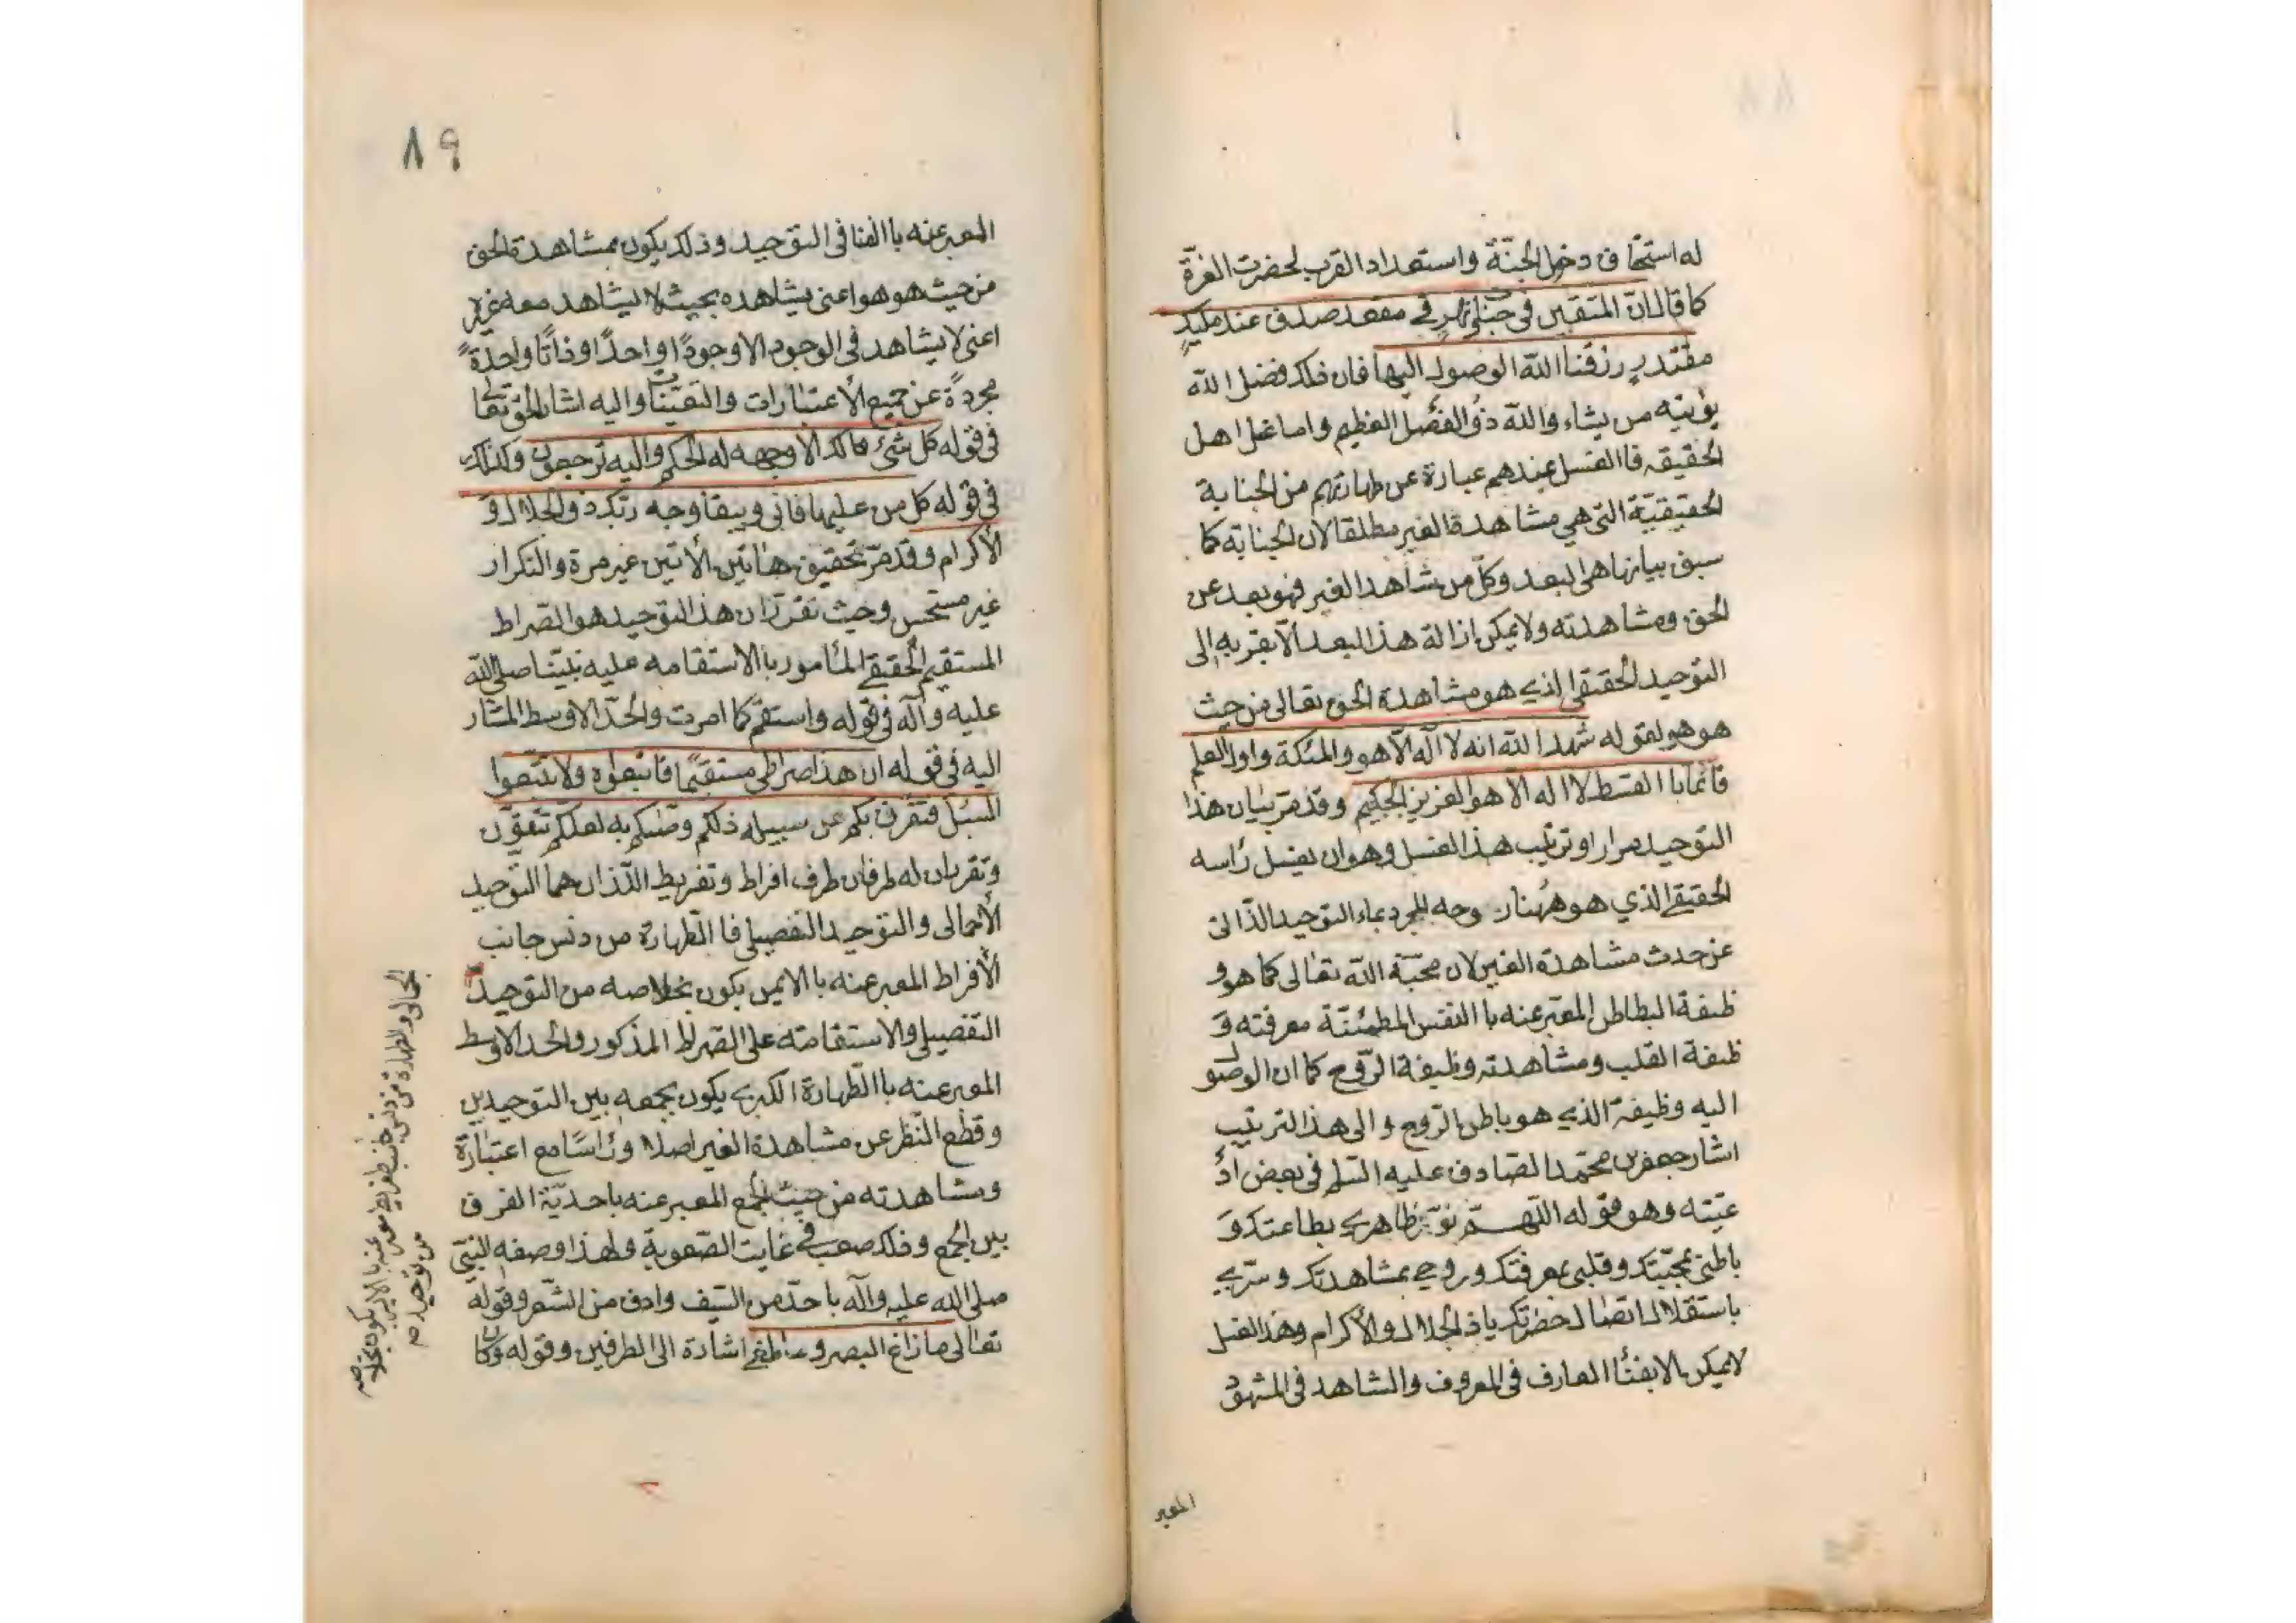 له استحقاق دخول الجنّة واستعداد القرب لحضرت العزّة
كما قال انّ المتقين في جنّات ونهرٍ في مقعد صدق عند مليكٍ
مقتدرٍ رزقنا اللّه الوصول اليها فان ذلك فضل اللّه
يؤتيه من يشاء واللّه ذو الفضل العظيم واما غسل اهل
الحقيقه فاالغسل عندهم عبارة عن طهارتهم من الجنابة
الحقيقيّة التي هي مشاهدة الغير مطلقا لان الجنابة كما
سبق بيانها هي البعد وكلّ من شاهد الغير فهو بعد عن
الحق ومشاهدته ولا يمكن ازالة هذا البعد الّا بقربه الى
التوحيد الحقيقى الذي هو مشاهدة الحق تعالى من حيث
هو هو لقوله شهد اللّه انه لا اله الّا هو والملئكة واولوا العلم
قائما باالقسط لا اله الا هو العزيز الحكيم وقد مرّ بيان هذا
التوحيد مرارا وترتيب هذا الغسل وهو ان يغسل رأسه
الحقيقي الذي هو هُهنا روحه المجرد بماء التوحيد الذّاتى
عن حدث مشاهدة الغير لان محبّة اللّه تعالى كما هو و
ظيفة الباطن المعبّر عنه باالنفس المطمئنّة معرفته و
ظيفة القلب ومشاهدته وظيفة الرّوح كما ان الوصول
اليه وظيفة الذي هو باطن الرّوح والى هذا الترتيب
اشار جعفر بن محمّد الصّادق عليه السّلم في بعض اد
عيّته وهو قوله اللّهمّ نوّر ظاهري بطاعتك و
باطنى بمحبّتك وقلبى بمعرفتك وروحي بمشاهدتك وسرّي
باستقلال اتصال حضرتك ياذ الجلال والأكرام وهذا الغسل
لا يمكن الا بفنأ العارف في المعروف والشاهد في المشهود
المعبر
٨٩
المعبر عنه باالفنا في التوحيد وذلك يكون بمشاهدة الحق
من حيث هو هو اعنى يشاهده بحيث لا يشاهد معه غيره
اعنى لا يشاهد في الوجود الا وجودًا واحدًا وذاتًا واحدةً
مجردةً عن جميع الأعتبارات والتعيّنات واليه اشار الحق تعالى
في قوله كل شيء هالك الا وجهه له الحكم واليه ترجعون وكذلك
في قوله كل من عليها فاني ويبقا وجه ربّك ذو الجلال و
الأكرام وقد مرّ تحقيق هاتين الأتين غير مرة والتكرار
غير مستحسن وحيث تقرّر ان هذا التوحيد هو الصّراط
المستقيم الحقيقي المأمور باالاستقامه عليه نبيّنا صلى اللّه
عليه وآله في قوله واستقم كما امرت والحدّ الاوسط المشار
اليه في قوله ان هذا صراطى مستقيمًا فاتبعوه ولا تتّبعوا
السّبل فتفرق بكم عن سبيله ذلكم وصّيكم به لعلكم تتّقون
وتقرّ بان له طرفان طرف افراط وتفريط الّذان هما التّوحيد
الأجمالى والتوحيد التفصيلى فا الطّهارة من دنس جانب
الأفراط المعبر عنه باالايمن يكون بخلاصه من التوحيد
التفصيلى والاستقامته على الصّراط المذكور والحد الاوسط
المعبر عنه باالطّهارة الكبرى يكون بجمعه بين التوحيدين
وقطع النّظر عن مشاهدة الغير اصلا ورأسًا مع اعتباره
ومشاهدته من حيث الجمع المعبر عنه باحديّة الفرق
بين الجمع وذلك صعب في غايت الصّعوبة ولهذا وصفه النّبيّ
صلى اللّه عليه وآله باحدّ من السّيف وادق من الشّعر وقوله
تعالى ما زاغ البصر وما طغى اشارة الى الطرفين وقوله وكان
الجمالى والطهارة من دنس جانب تفريط معبر عنه باالايسر يكون بخلاصه
من توحيد صم